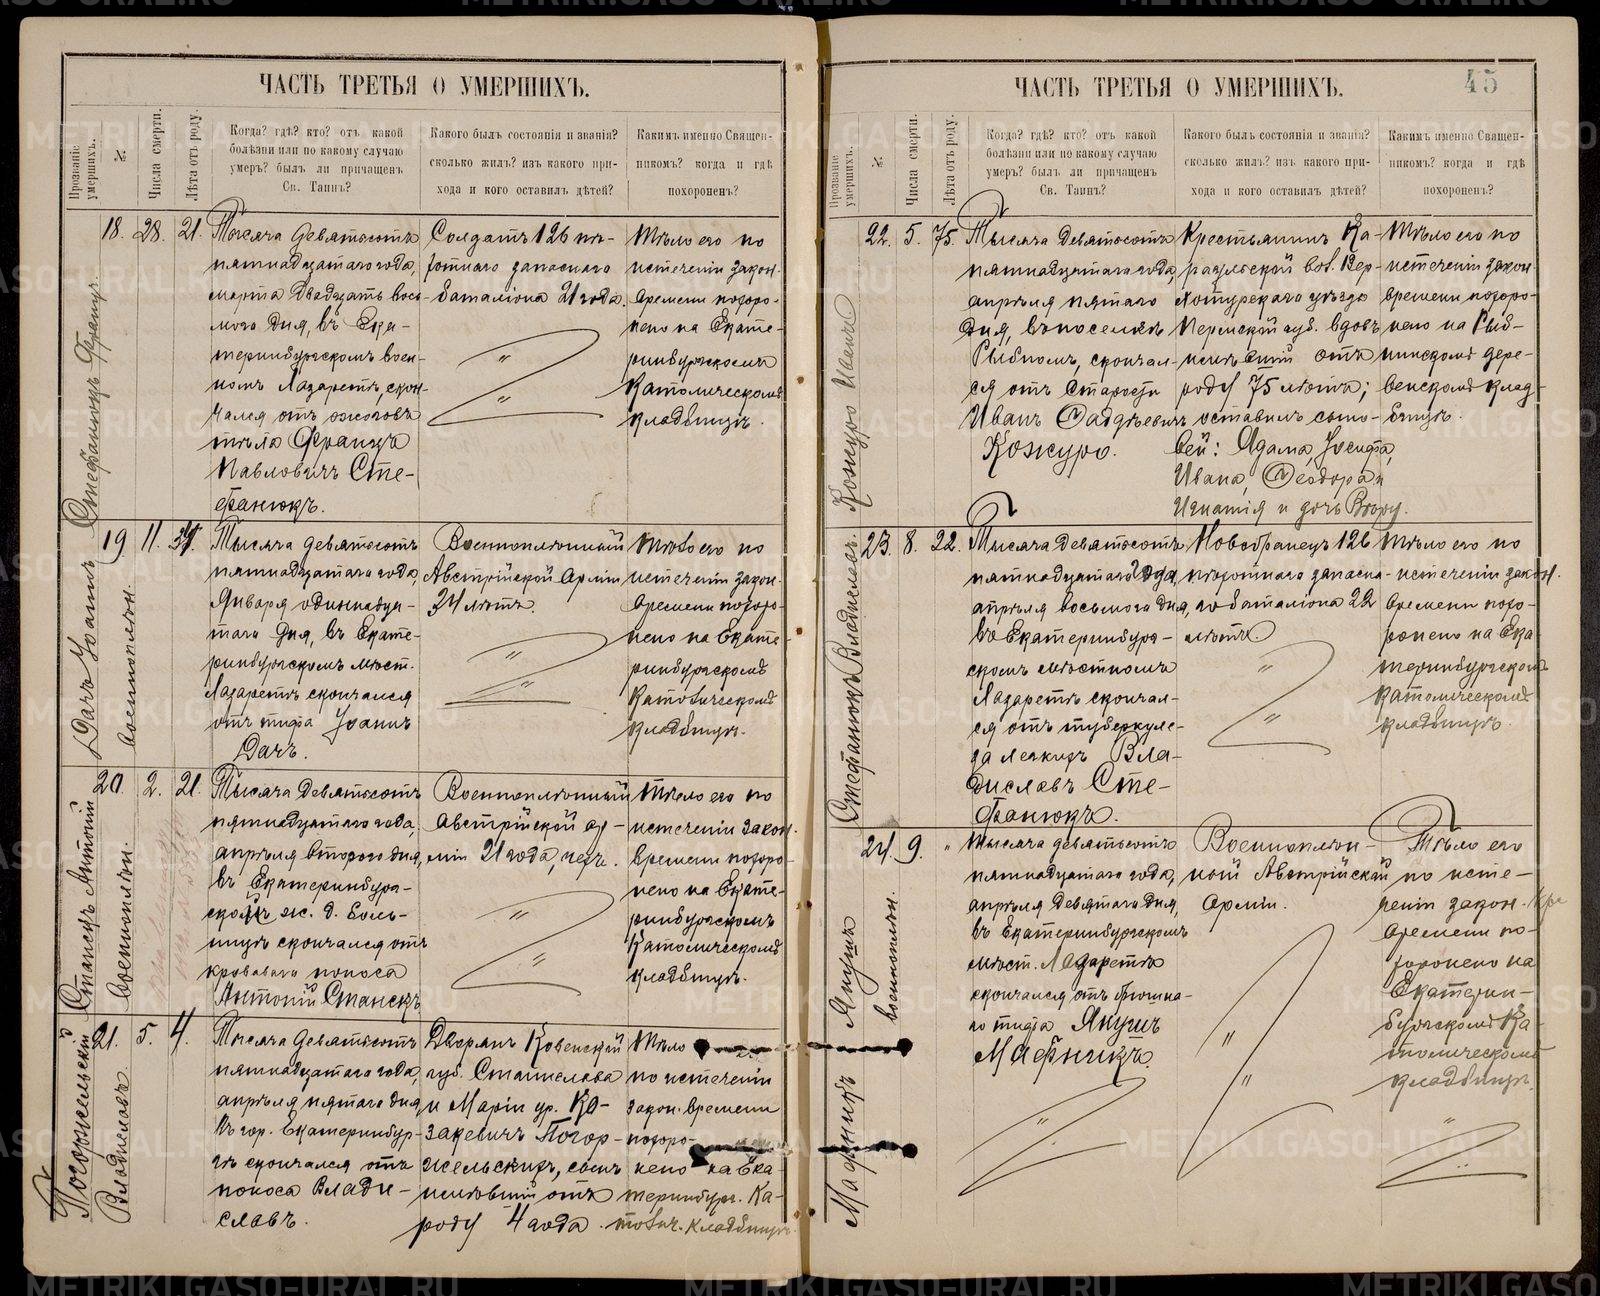 ЧАСТЬ ТРЕТЬЯ О УМЕРШИХЪ.
Прозваніе умершихъ.
№
Числа смерти.
Лѣта отъ роду.
Когда? гдѣ? кто? отъ какой
болѣзни или по какому случаю
умеръ? былъ ли причащенъ
Св. Таинъ?
Какого былъ состоянія и званія?
сколько жилъ? изъ какого при-
хода и кого оставилъ дѣтей?
Какимъ именно Священ-
никомъ? когда и гдѣ
похороненъ?
Стефанюкъ Францъ.
18.
28.
21.
Тысяча девятьсотъ
пятнадцатаго года,
марта двадцать вось-
мого дня, въ Ека-
теринбургскомъ воен-
номъ Лазаретѣ, скон-
чался отъ ожоговъ
тѣла Францъ
Павловичъ Сте-
фанюкъ.
Солдатъ 126 пѣ-
хотнаго запаснаго
баталіона 21 года.
Тѣло его по
истеченіи закон.
времени похоро-
нено на Екате-
ринбургскомъ
Католическомъ
кладбищѣ.
Дачъ Іоаннъ
военноплѣн.
19
11.
34.
Тысяча девятьсотъ
пятнадцатаго года,
Января одиннадца-
таго дня, въ Екате-
ринбургскомъ мѣст.
Лазаретѣ скончался
отъ тифа Іоаннъ
Дачъ.
Военноплѣнный
Австрійской Арміи
34 лѣтъ.
Тѣло его по
истеченіи закон.
времени похоро-
нено на Екате-
ринбургскомъ
Католическомъ
кладбищѣ.
Станекъ Антоній
военноплѣн.
20
2.
21.
Тысяча девятьсотъ
пятнадцатаго года,
апрѣля второго дня,
въ Екатеринбург-
ской ж. д. Боль-
ницѣ скончался отъ
кроваваго поноса
Антоній Станекъ
Военноплѣнный
Австрійской ар-
міи 21 года, чехъ.
Тѣло его по
истеченіи закон.
времени похоро-
нено на Екате-
ринбургскомъ
Католическомъ
кладбищѣ.
Погоржельскій
Владиславъ
21.
5.
4.
Тысяча девятьсотъ
пятнадцатаго года,
апрѣля пятаго дня
въ гор. Екатеринбур-
гѣ скончался отъ
поноса Влади-
славъ.
Дворянъ Ковенской
губ. Станислава
и Маріи ур. Ка-
закевичъ Погор-
жельскихъ, сынъ
имѣвшій отъ
роду 4 года.
Тѣло
по истеченіи
закон. времени
похоро-
нено на Ека
теринбург. Ка-
толич. кладбищѣ.
ЧАСТЬ ТРЕТЬЯ О УМЕРШИХЪ.
45
Прозваніе умершихъ.
№
Числа смерти.
Лѣта отъ роду.
Когда? гдѣ? кто? отъ какой
болѣзни или по какому случаю
умеръ? былъ ли причащенъ
Св. Таинъ?
Какого былъ состоянія и званія?
сколько жилъ? изъ какого при-
хода и кого оставилъ дѣтей?
Какимъ именно Священ-
никомъ? когда и гдѣ
похороненъ?
Кожуро Иванъ
22.
5.
75.
Тысяча девятьсотъ
пятнадцатаго года,
апрѣля пятаго
дня, въ поселкѣ
Рыбномъ, скончал-
ся отъ старости
Иванъ Ѳаддѣевичъ
Кожуро.
Крестьянинъ Ка-
раульской вол. Вер-
хотурскаго уѣзда
Пермской губ. вдовъ
имѣвшій отъ
роду 75 лѣтъ;
оставилъ сыно-
вей: Адама, Іосифа,
Ивана, Ѳеодора и
Игнатія и дочь Вѣру.
Тѣло его по
истеченіи закон
времени похоро-
нено на Рыб-
нинскомъ дере-
венскомъ клад-
бищѣ.
Стефанюкъ Владиславъ.
23.
8.
22.
Тысяча девятьсотъ
пятнадцатаго года
апрѣля восьмого дня,
въ Екатеринбург-
скомъ мѣстномъ
Лазаретѣ скончал-
ся отъ туберкуле-
за легкихъ Вла-
диславъ Сте-
фанюкъ.
Новобранецъ 126
пѣхотнаго запасна-
го баталіона 22
лѣтъ.
Тѣло его по
истеченіи закон.
времени похо-
ронено на Ека-
теринбургскомъ
Католическомъ
кладбищѣ.
Мафникъ Якушъ
военноплѣн.
24.
9.
"
Тысяча девятьсотъ
пятнадцатаго года,
апрѣля девятаго дня,
въ Екатеринбургскомъ
мѣст. Лазаретѣ
скончался отъ брюшна-
го тифа Якушъ
Мафникъ.
Военноплѣн-
ный Австрійской
Арміи.
Тѣло его
по исте-
ченіи закон.
времени по-
хоронено на
Екатерин-
бургскомъ Ка-
толическомъ
кладбищѣ.
METRIKI.GASO-URAL.RU